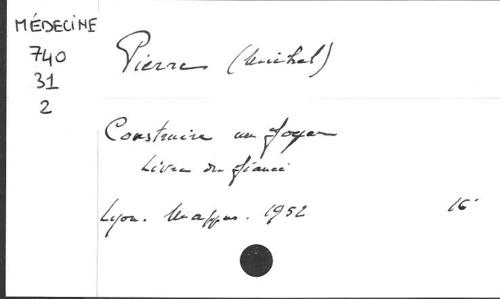 MÉDECINE
740
31
2
Pierre (Michel)
Construire un foyer
Livre du fiancé
Lyon. Mappus. 1952 16°